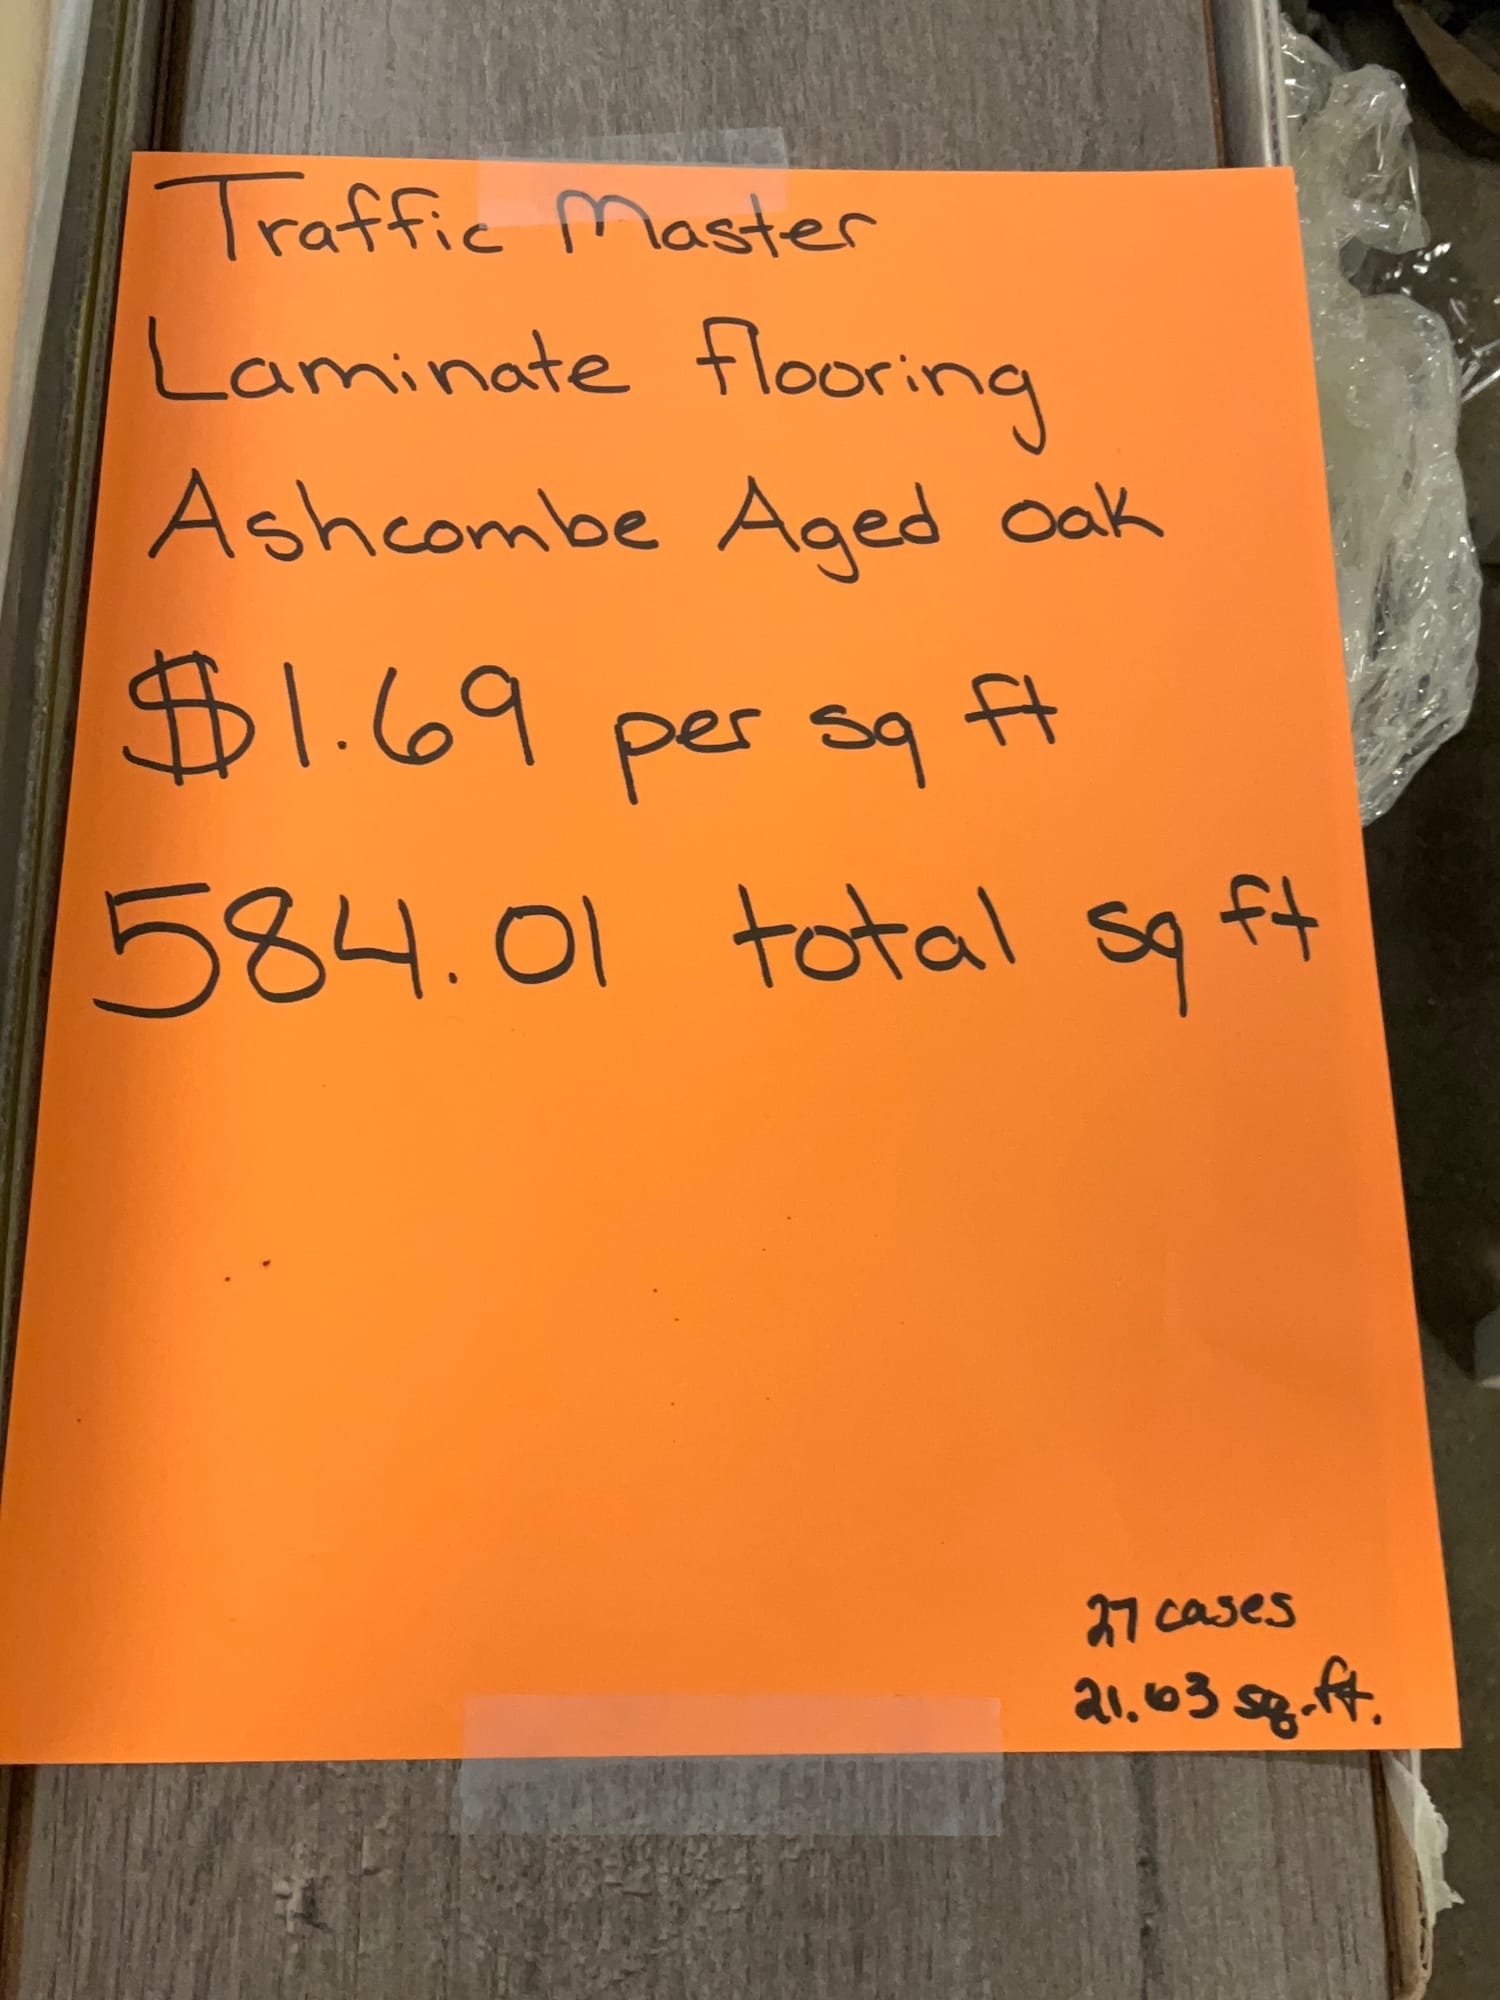 Traffic Master
Laminate flooring
Ashcombe Aged oak
$1.69 per sq ft
584.01 total sq ft
27 cases
21.63 sq.ft.